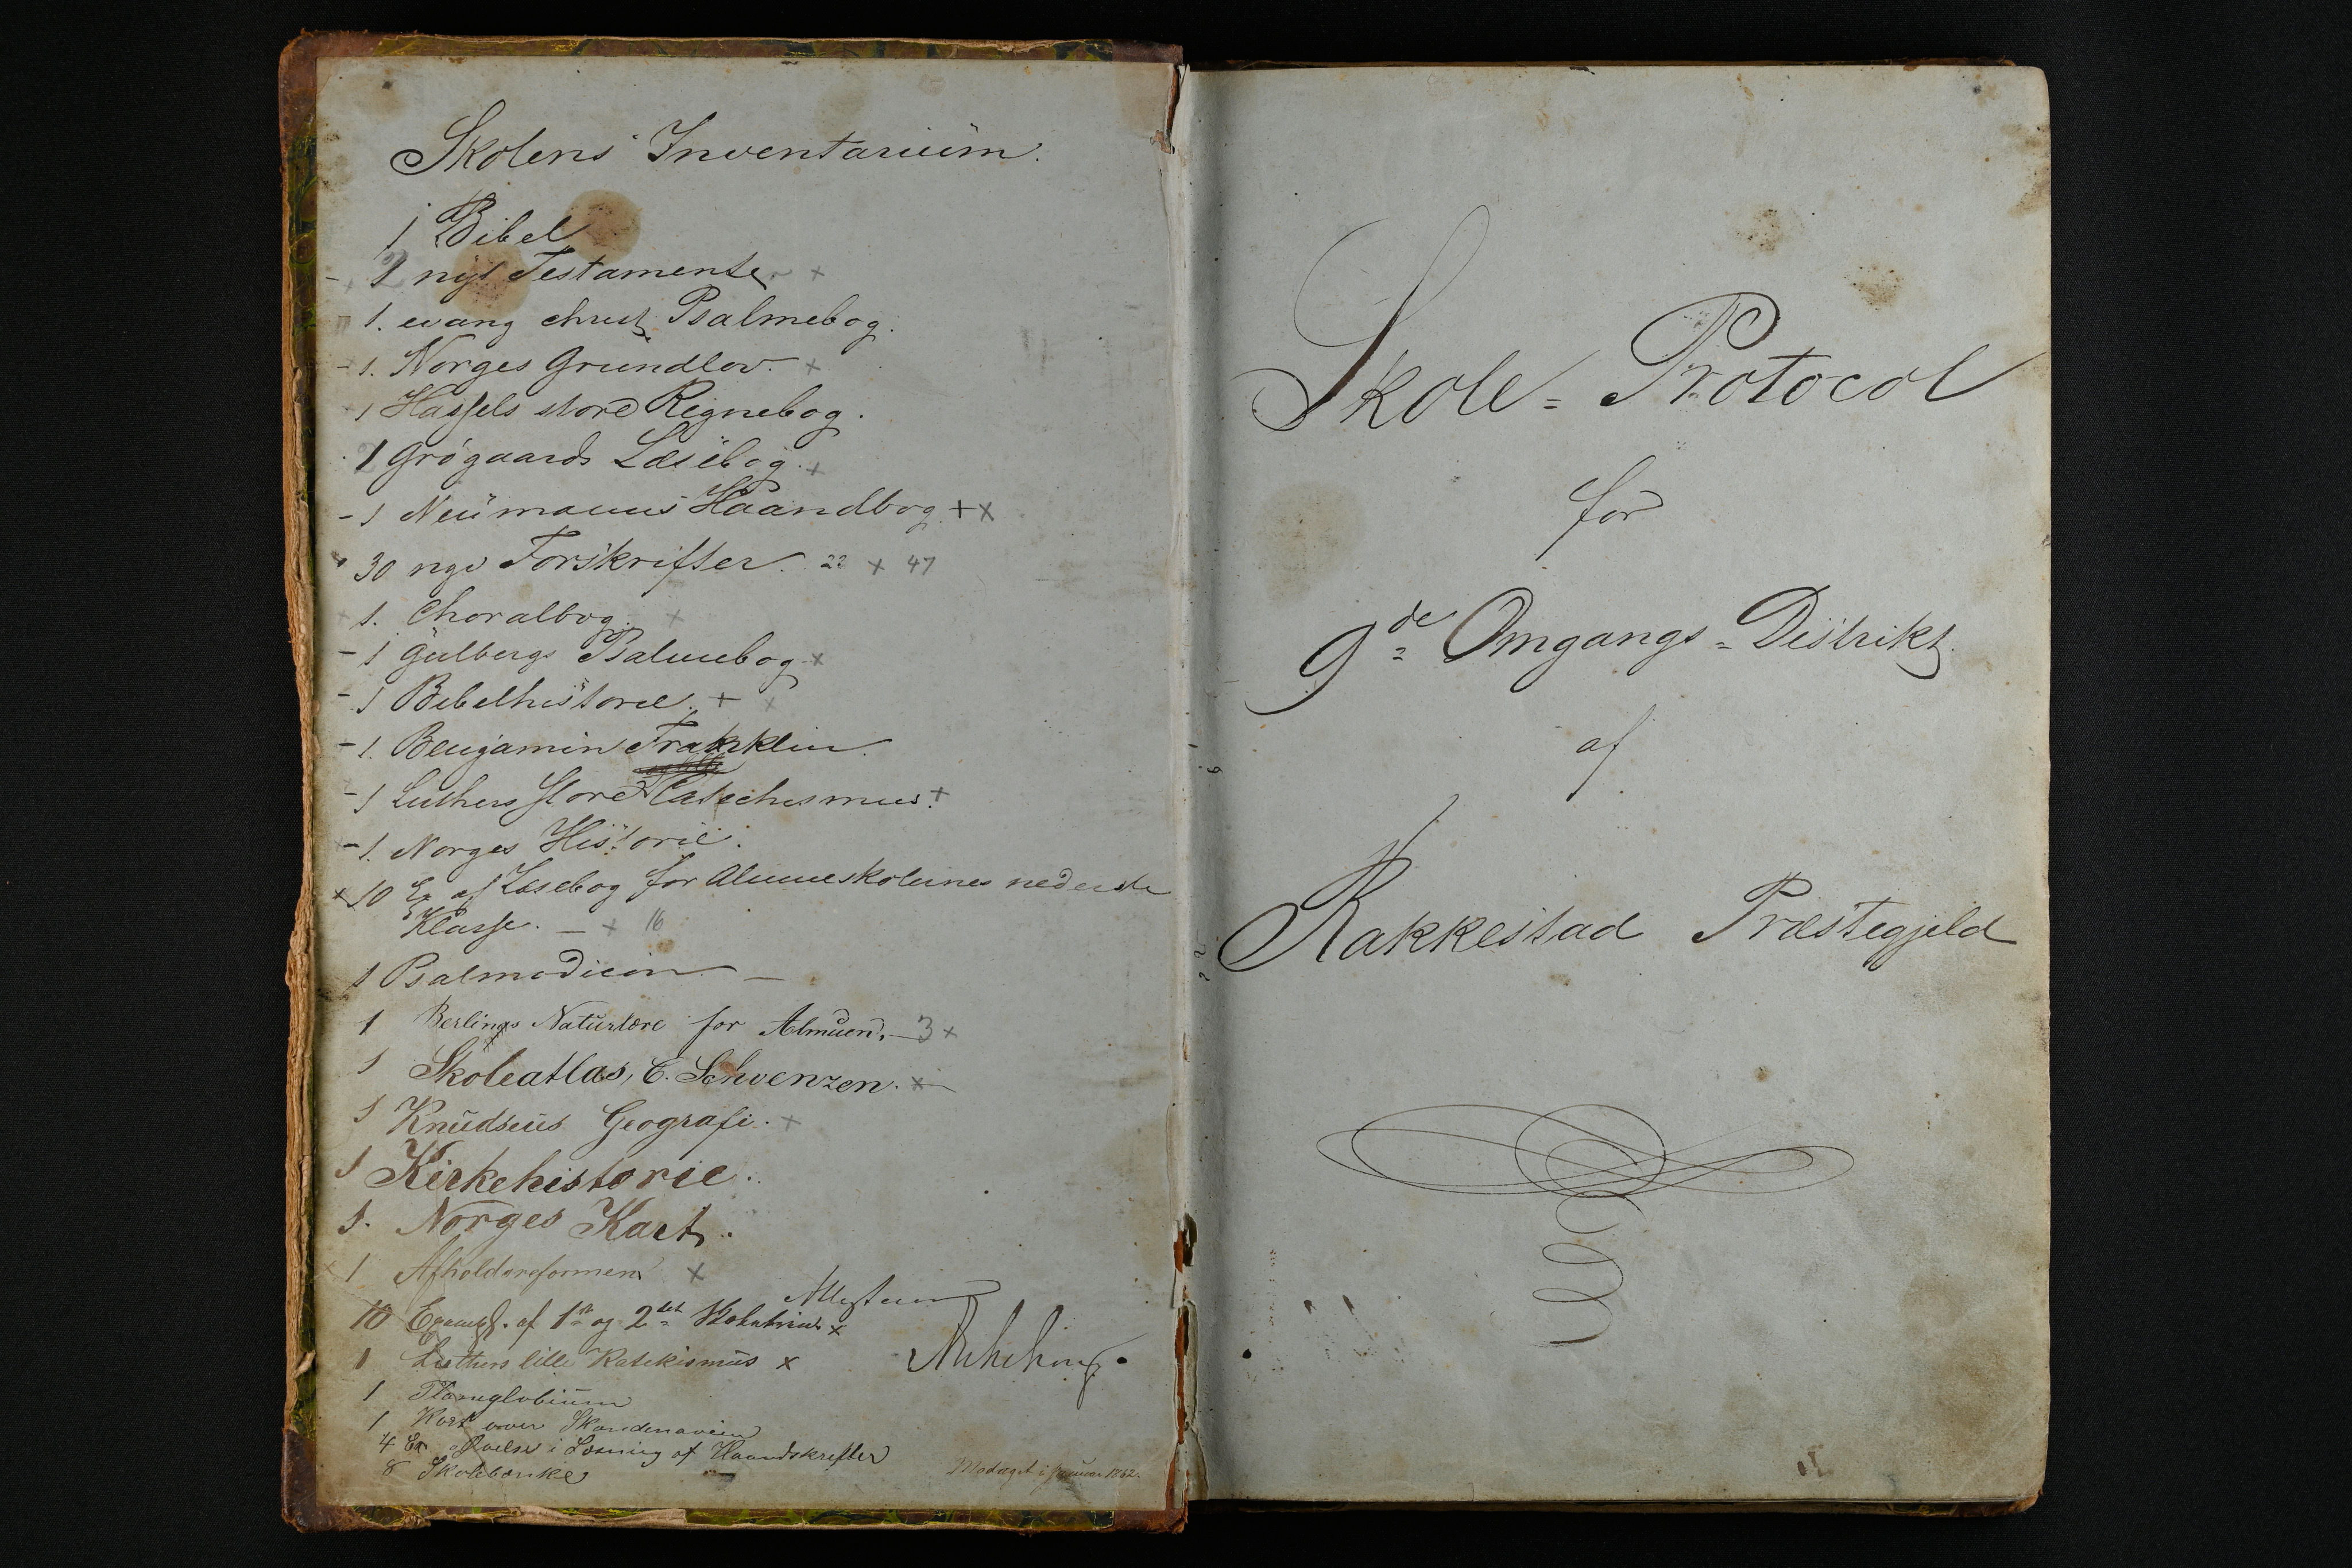 Skolens Inventarium.
1 Bibel
- 1 nyt Testamente +
1. evang christ Psalmebog.
- 1. Norges Grundlov. +
1 Hassels store Regnebog.
1 Grøgaards Læsebog. +
- 1 Neumanns Haandbog + x
30 nye Forskrifter. 22 + 47
1. Choralbog. +
- 1 Gulbergs Psalmebog x
- 1 Bibelhistorie. + x
- 1. Benjamin Franklin.
- 1 Luthers store Catechismus. +
- 1. Norges Historie.
x 10 Ex af Læsebog for Almueskolernes nederste
Klasse. - + 16
1 Psalmodicon -
1 Berlings Naturlære for Almuen. - 3 x
1 Skoleatlas, C. Schwenzen. x
1 Knudsens Geografi. +
1 Kirkehistorie.
1. Norges Kart.
1 Afholdsreformen x
10 Exempl. af 1ste og 2det x
1 Luthers lille Katekismus x
1 Planglobium
1 Kart over Skandenavien
4 Ex Øvelse i Læsning af Haandskrifter
8 Skolebænke
Modtaget i Januar 1862.
Skole = Protocol
for
9de Omgangs = Distrikt
af
Rakkestad Præstegjeld